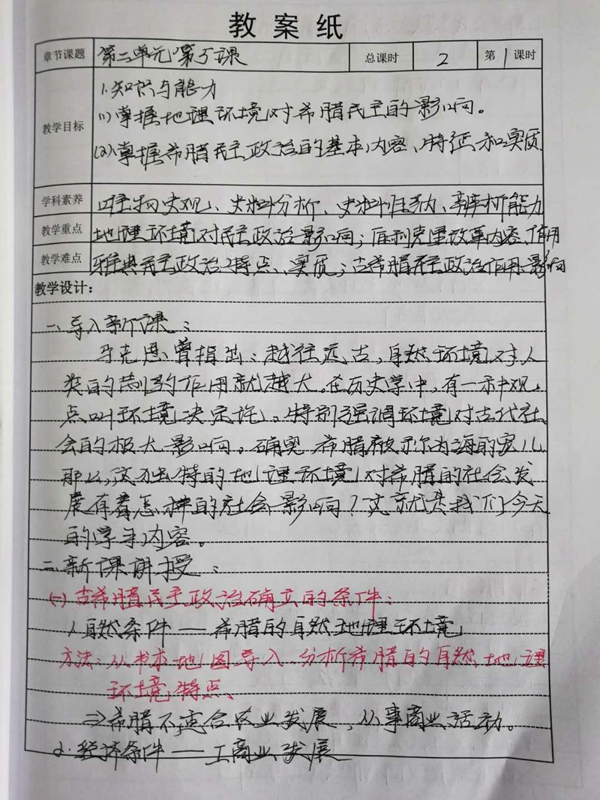 教案纸
章节课题 第二单元第5课 总课时 2 第1课时
教学目标
1.知识与能力
(1)掌握地理环境对希腊民主的影响。
(2)掌握希腊民主政治的基本内容、特征和实质
学科素养 唯物史观、史料分析、史料归纳、辨析能力
教学重点 地理环境对民主政治影响;伯利克里改革内容、作用
教学难点 雅典民主政治特点、实质;古希腊民主政治作用影响
教学设计:
一、导入新课:
马克思曾指出:越往远古,自然环境对人
类的制约作用就越大。在历史学中,有一种观
点叫环境决定论。特别强调环境对古代社
会的极大影响。确实希腊被称为海的宠儿
那么,这独特的地理环境对希腊的社会发
展有着怎样的社会影响?这就是我们今天
的学习内容。
二、新课讲授:
(一)古希腊民主政治确立的条件:
1、自然条件——希腊的自然地理环境
方法:从书本地图导入、分析希腊的自然地理
环境特点、
⇒希腊不适合农业发展,从事商业活动。
2、经济条件——工商业发展